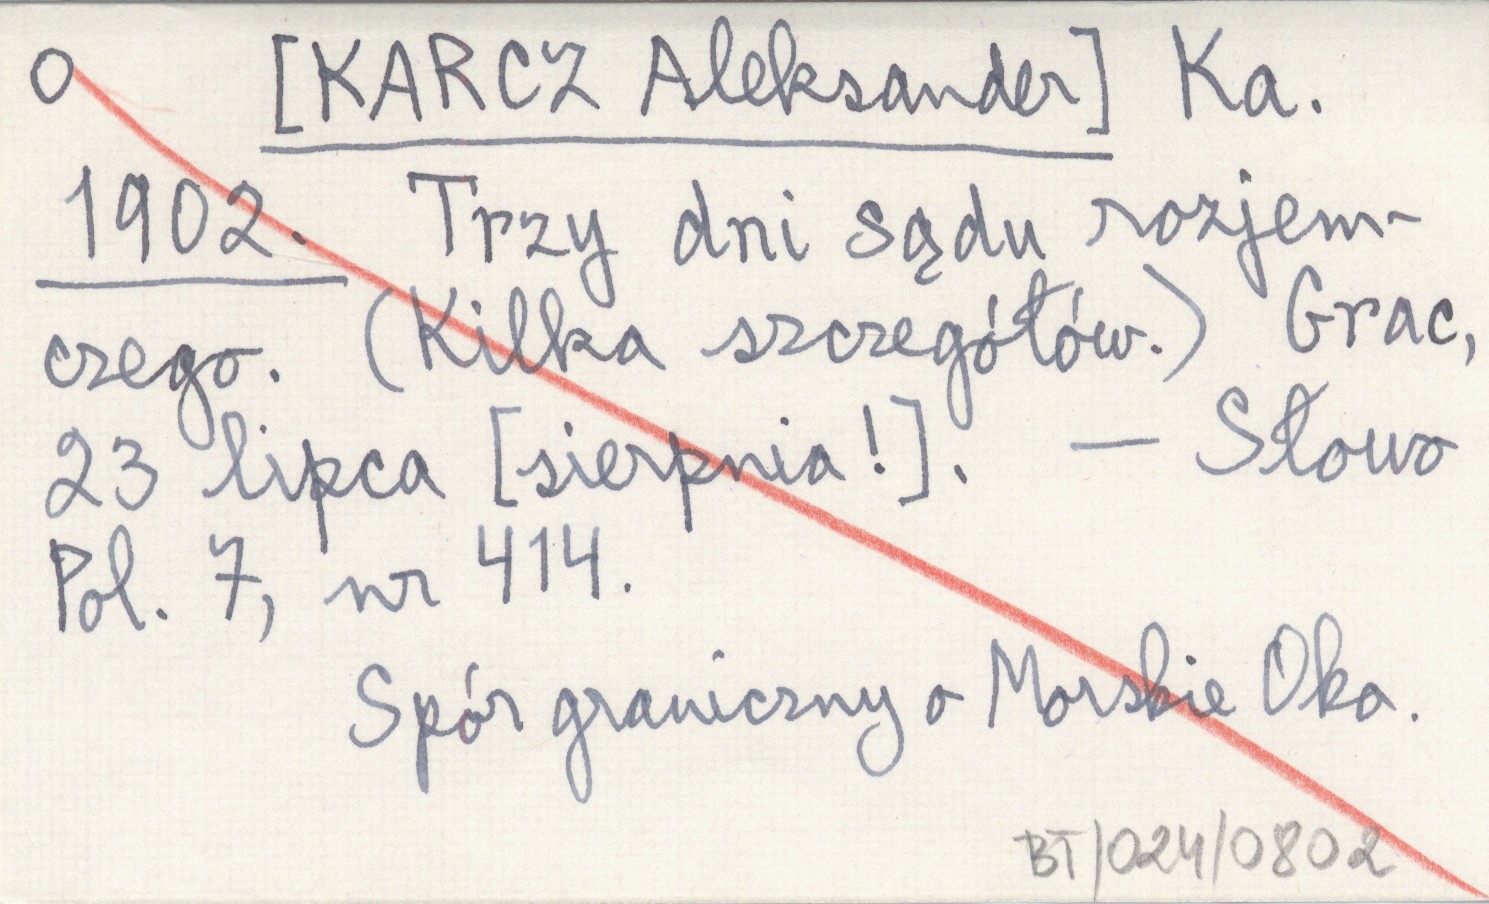 O [KARCZ Aleksander] Ka.
1902. Trzy dni sądu rozjem-
czego. (Kilka szczegółów.) Grac,
23 lipca [sierpnia!]. — Słowo
Pol. 7, nr 414.
Spór graniczny o Morskie Oko.
BT/024/0802